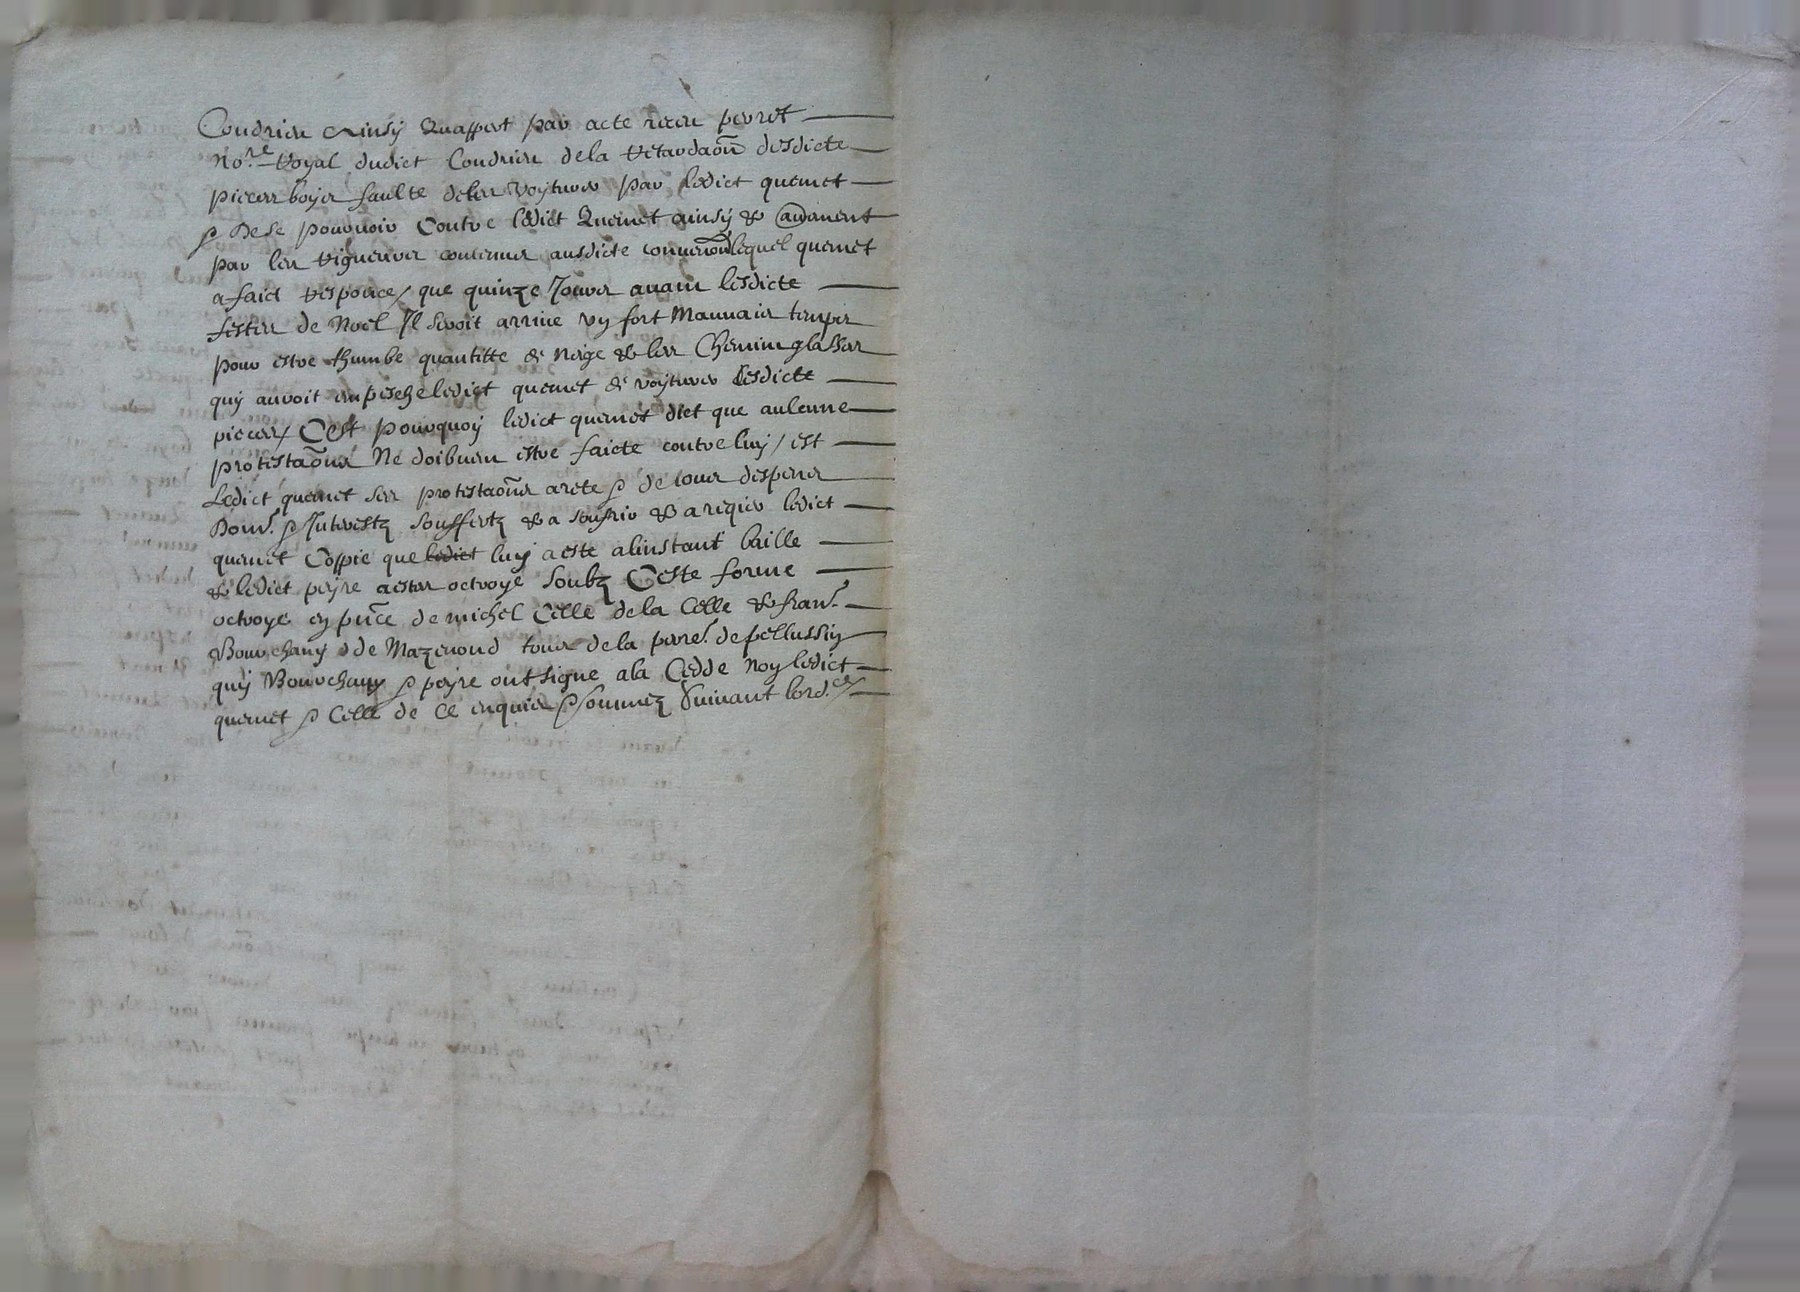 Condrieu Ainsy Quappert par acte receu perret
No.re Royal dudict Condrieu de la retardaon desdicte
pieces boyer faulte deles voyturer par ledict quernet
& De se pourvoir Contre ledict Quernet ainsy &
par les rigueurs contenues ausdicte lequel quernet
a faict responce / que quinze Jours avam lesdicte
festes de Noel Il seroit arrive un fort Mauvais temps
pour estre thumbe quantitte de Neige & les Chemin glasses
quy auroit enpesche ledict quernet de voyturer lesdicte
pieces / C'est pourquoy ledict quernet dict que aulcune
protestaons Ne doibvem estre faicte contre luy / est
Ledict quernet ses protestaons arete & de tous despens
Dom. & Interestz souffertz & a soufrir & a requis ledict
quernet Coppie que ledict luy a este a linstant baille
& ledict peyre actes octroye soubz Ceste forme
octroye en pnce de michel Celle de la Celle & fran.
Bourchany de Mazenond tous de la parre. de pellussin
quy Bourchany & peyre ont signe a la Cedde Non ledict
quernet & Celle de Ce enquis & sommez Suivant lord.ce